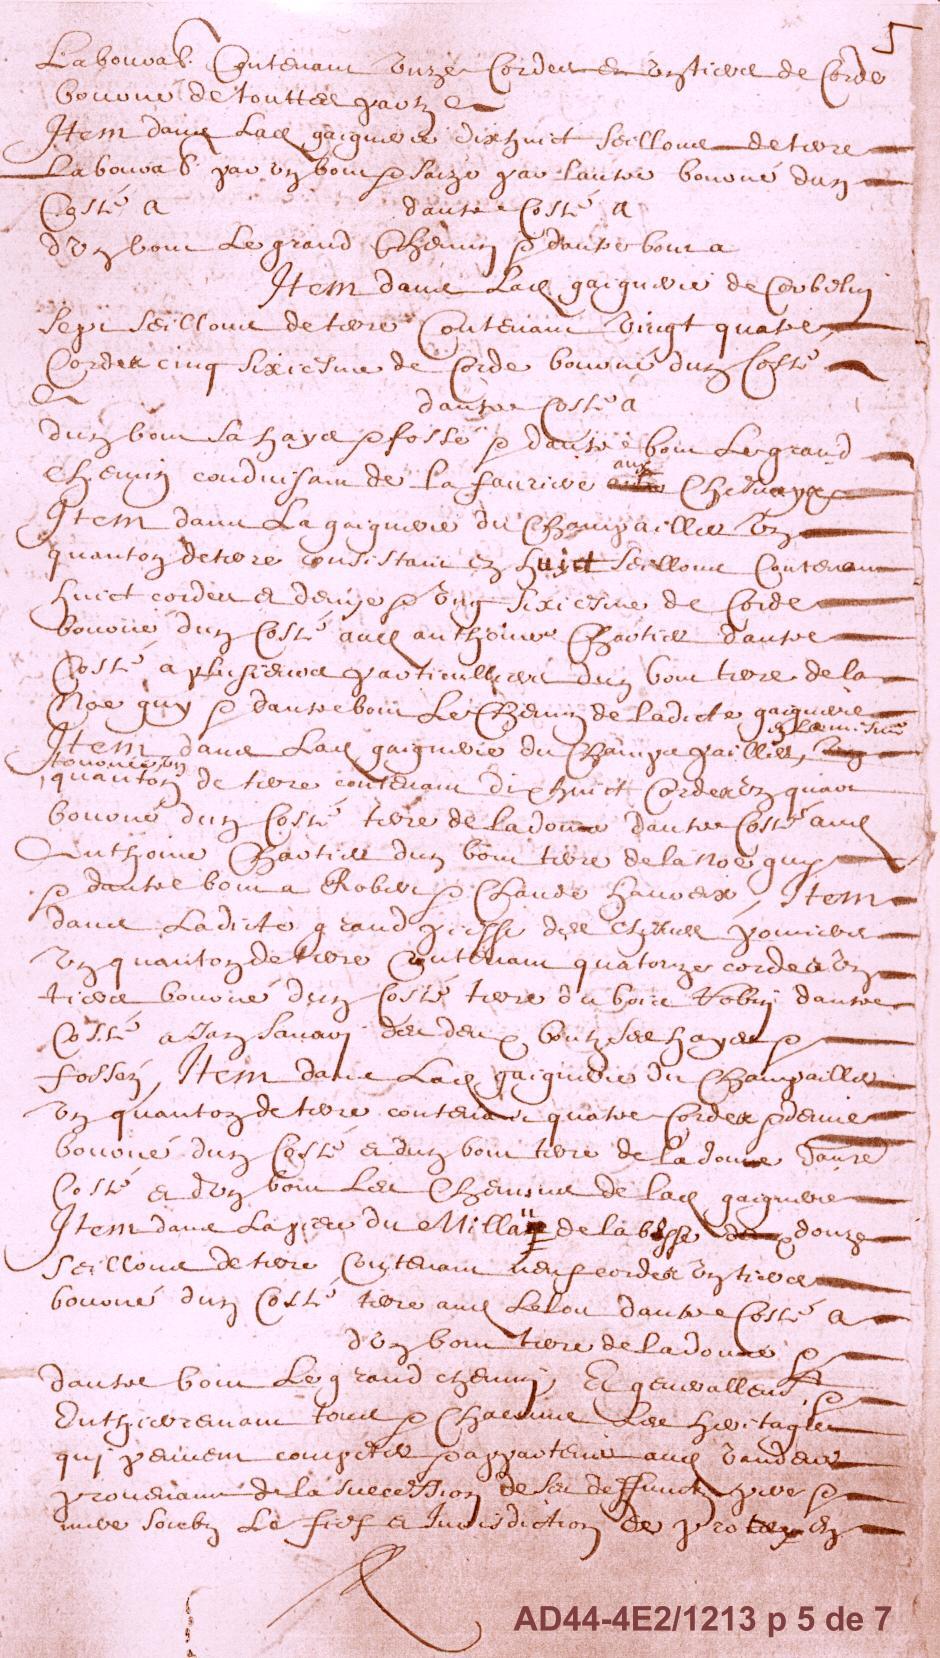 5
Labourab. Contenant unze Cordes et ung tiers de Corde
bourné de touttes partz
Item dans Lad gaignerie dixhuict seillons de terre
Labourab par ung bout & saize par lautre bourné dung
Costé a dautre Costé a
dung bout Le grand Chemin & dautre bout a
Item dans Lad gaignerie de Corbelin
sept seillons de terre Contenant vingt quatre
Cordes cinq sixiesme de Corde bourné dung Costé
a dautre Costé a
dung bout sa haye & fossé & dautre bout Le grand
Chemin conduisant de la faurière aux
Item dans La gaignerie du Champaillier ung
quanton de terre consistant en huict seillons Contenant
huict cordes et demye & ung sixiesme de Corde
bourné dung Costé aud anthoine dautre
Costé a plusieurs particulliers dung bout terre de la
Noe guy & dautre bout Le Chemin de ladicte gaignerie
Item dans Lad gaignerie du Champaillier,
quanton de terre contenant dixhuict Cordes ung quart
bourné dung Costé terre de la donne dautre Costé aud
Anthoine dung bout terre de la Noe guy
& dautre bout a Robert & Claude, Item
dans Ladicte grand piesse des
ung quanton de terre Contenant quatorze cordes ung
tiers bourné dung Costé terre du bois dautre
Costé a Jan des deux boutz ses hayes &
fossez, Item dans Lad gaignerie du Champaillier
ung quanton de terre contenant quatre Cordes & demie
bourné dung Costé et dung bout terre de la donne dautre
Costé et dung bout Les Chemins de lad gaignerie
Item dans La piece du de la douze
seillons de terre Contenant neuf cordes ung tiers
bourné dung Costé terre aud Lelou dautre Costé a
dung bout terre de la donne &
dautre bout Le grand chemin, Et generallement
Enthierement tous & Chacuns Les heritages
qui peuvent compéter & appartenir aud vandeur
provenant de la succession de ses deffunctz pere &
mere soubz Le fief et Jurisdiction de
AD44-4E2/1213 p 5 de 7